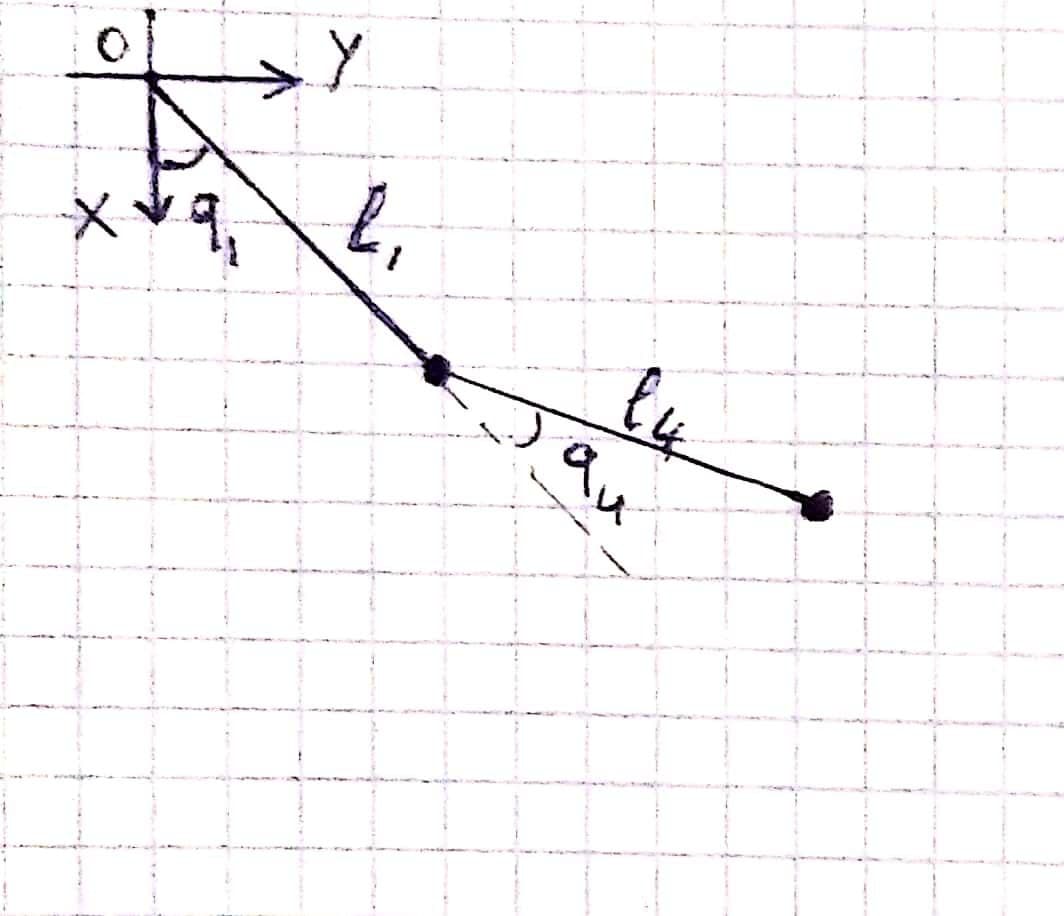 O
Y
X
q₁
l₁
l₄
q₄